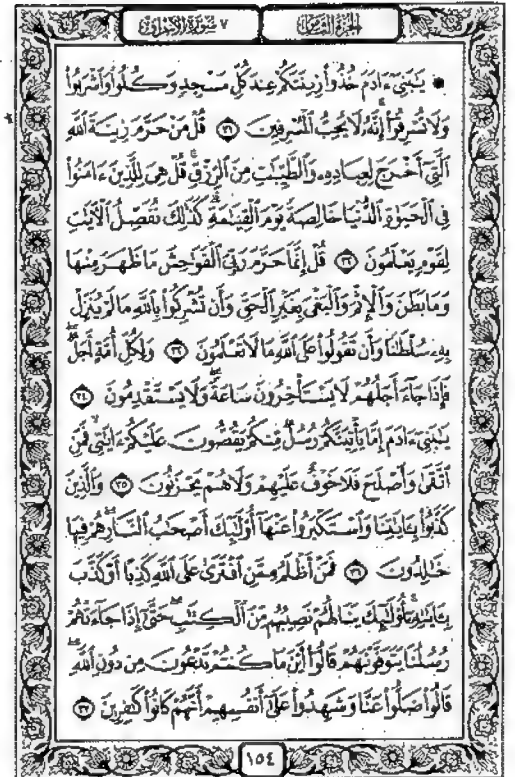 الجزء الثامن
٧ سورة الأعراف
۞ يَٰبَنِىٓ ءَادَمَ خُذُوا۟ زِينَتَكُمْ عِندَ كُلِّ مَسْجِدٍ وَكُلُوا۟ وَٱشْرَبُوا۟
وَلَا تُسْرِفُوٓا۟ إِنَّهُۥ لَا يُحِبُّ ٱلْمُسْرِفِينَ ٣١ قُلْ مَنْ حَرَّمَ زِينَةَ ٱللَّهِ
ٱلَّتِىٓ أَخْرَجَ لِعِبَادِهِۦ وَٱلطَّيِّبَٰتِ مِنَ ٱلرِّزْقِ ۚ قُلْ هِىَ لِلَّذِينَ ءَامَنُوا۟
فِى ٱلْحَيَوٰةِ ٱلدُّنْيَا خَالِصَةً يَوْمَ ٱلْقِيَٰمَةِ ۗ كَذَٰلِكَ نُفَصِّلُ ٱلْءَايَٰتِ
لِقَوْمٍ يَعْلَمُونَ ٣٢ قُلْ إِنَّمَا حَرَّمَ رَبِّىَ ٱلْفَوَٰحِشَ مَا ظَهَرَ مِنْهَا
وَمَا بَطَنَ وَٱلْإِثْمَ وَٱلْبَغْىَ بِغَيْرِ ٱلْحَقِّ وَأَن تُشْرِكُوا۟ بِٱللَّهِ مَا لَمْ يُنَزِّلْ
بِهِۦ سُلْطَٰنًا وَأَن تَقُولُوا۟ عَلَى ٱللَّهِ مَا لَا تَعْلَمُونَ ٣٣ وَلِكُلِّ أُمَّةٍ أَجَلٌ ۖ
فَإِذَا جَآءَ أَجَلُهُمْ لَا يَسْتَأْخِرُونَ سَاعَةً ۖ وَلَا يَسْتَقْدِمُونَ ٣٤
يَٰبَنِىٓ ءَادَمَ إِمَّا يَأْتِيَنَّكُمْ رُسُلٌ مِّنكُمْ يَقُصُّونَ عَلَيْكُمْ ءَايَٰتِى ۙ فَمَنِ
ٱتَّقَىٰ وَأَصْلَحَ فَلَا خَوْفٌ عَلَيْهِمْ وَلَا هُمْ يَحْزَنُونَ ٣٥ وَٱلَّذِينَ
كَذَّبُوا۟ بِـَٔايَٰتِنَا وَٱسْتَكْبَرُوا۟ عَنْهَآ أُو۟لَٰٓئِكَ أَصْحَٰبُ ٱلنَّارِ ۖ هُمْ فِيهَا
خَٰلِدُونَ ٣٦ فَمَنْ أَظْلَمُ مِمَّنِ ٱفْتَرَىٰ عَلَى ٱللَّهِ كَذِبًا أَوْ كَذَّبَ
بِـَٔايَٰتِهِۦٓ ۚ أُو۟لَٰٓئِكَ يَنَالُهُمْ نَصِيبُهُم مِّنَ ٱلْكِتَٰبِ ۖ حَتَّىٰٓ إِذَا جَآءَتْهُمْ
رُسُلُنَا يَتَوَفَّوْنَهُمْ قَالُوٓا۟ أَيْنَ مَا كُنتُمْ تَدْعُونَ مِن دُونِ ٱللَّهِ ۖ
قَالُوا۟ ضَلُّوا۟ عَنَّا وَشَهِدُوا۟ عَلَىٰٓ أَنفُسِهِمْ أَنَّهُمْ كَانُوا۟ كَٰفِرِينَ ٣٧
١٥٤